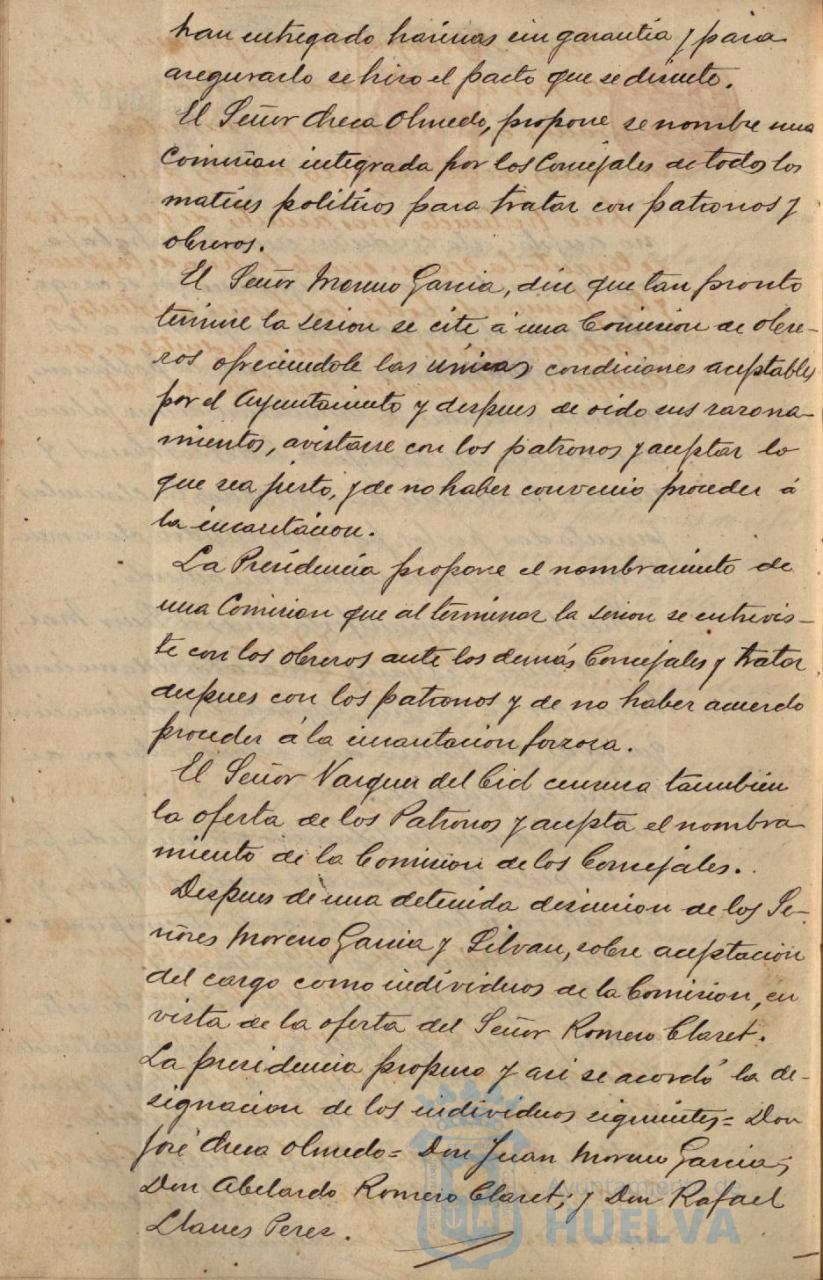 han entregado harinas sin garantia y para
asegurarlo se hizo el pacto que se discute.
El Señor Checa Olmedo, propone se nombre una
Comision integrada por los Concejales de todos los
matices politicos para tratar con patronos y
obreros.
El Señor Moreno Garcia, dice que tan pronto
termine la sesion se cite á una Comision de obre-
ros ofreciendole las únicas condiciones aceptables
por el Ayuntamiento y despues de oido sus razona-
mientos, avistarse con los patronos y aceptar lo
que sea justo, y de no haber convenio proceder á
la incautacion.
La Presidencia propone el nombramiento de
una Comision que al terminar la sesion se entrevis-
te con los obreros ante los demás Concejales y tratar
despues con los patronos y de no haber acuerdo
proceder á la incautacion forzosa.
El Señor Vazquez del Cid censura tambien
la oferta de los Patronos y acepta el nombra
miento de la Comision de los Concejales.
Despues de una detenida discusion de los Se-
ñores Moreno Garcia y Silvan, sobre aceptacion
del cargo como individuos de la Comision, en
vista de la oferta del Señor Romero Claret.
La presidencia propuso y asi se acordó la de-
signacion de los individuos siguientes= Don
José Checa Olmedo= Don Juan Moreno Garcia;
Don Abelardo Romero Claret; y Don Rafael
Llanes Perez.
Ayuntamiento de
HUELVA